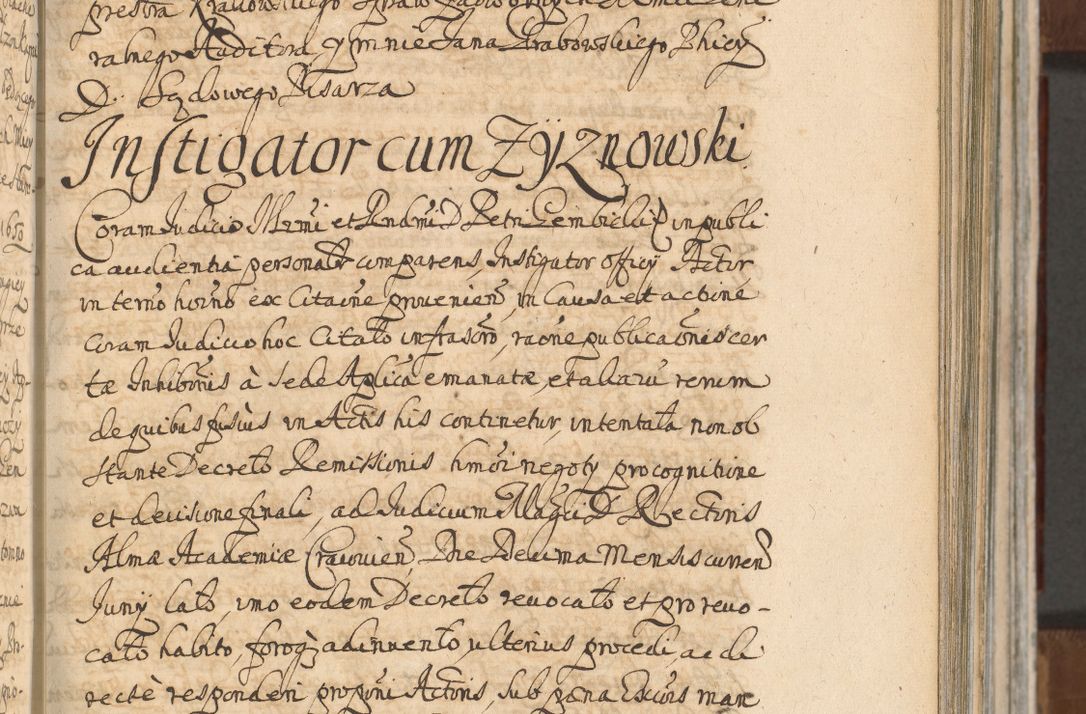 ralnego Auditora y mnie Jana Grabowskiego Phiey
D. Sędowego Pisarza
Instigator cum Zÿznowski
Coram Judicio Illrmi et Rndmi D Petri Gembicki in publi
ca audientia personalr comparens, Instigator officy Actor
in terno horno ex Citaõne provenien, in Causa et actione
Coram Judicio hoc Citato infrascro, raõne publicaõnis cer
tæ Inhibõnis à sede Aplica emanatæ, et aliarũ rerum
de quibus fusiùs in Actis his continetur, intentata non ob
stante Decreto Remissionis hmõi negoty pro cognitione
et decisione finali, ad Judicium Magci D Rectoris
Almæ Academiæ Cracovien, Die Decima Mensis curren
Juny lato, imo eodem Decreto revocato et pro revo-
cato habito, foroq adinvento, ulterius procedi, ac di
rectè responderi propõni Actoris, sub pæna Excõis man